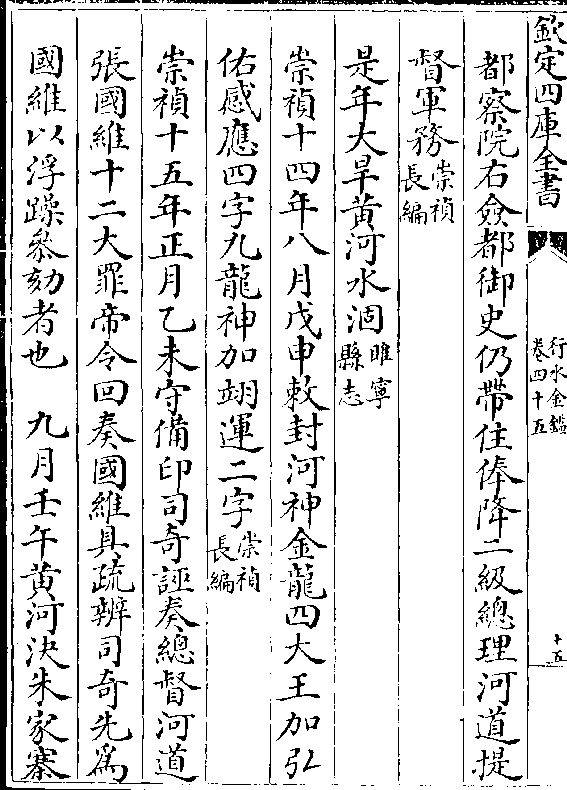 欽定四庫全書
行水金鑑
卷四十五
十五
都察院右僉都御史仍帶住俸降二級總理河道提
督軍務崇禎長編
是年大旱黄河水涸睢寧縣志
崇禎十四年八月戊申敕封河神金龍四大王加弘
佑感應四字九龍神加翊運二字崇禎長編
崇禎十五年正月乙未守備印司奇誣奏總督河道
張國維十二大罪帝令回奏國維具疏辨司奇先為
國維以浮躁叅劾者也　九月壬午黄河決朱家寨